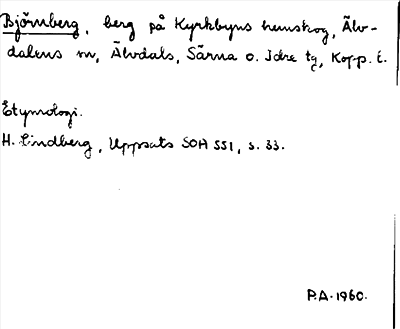 Björnberg, berg på Kyrkbyns hemskog, Älv-
dalens sn, Älvdals, Särna o. Idre tg, Kopp. l.
Etymologi.
H. Lindberg, Uppsats SOA 551, s. 33.
P.A. 1960.